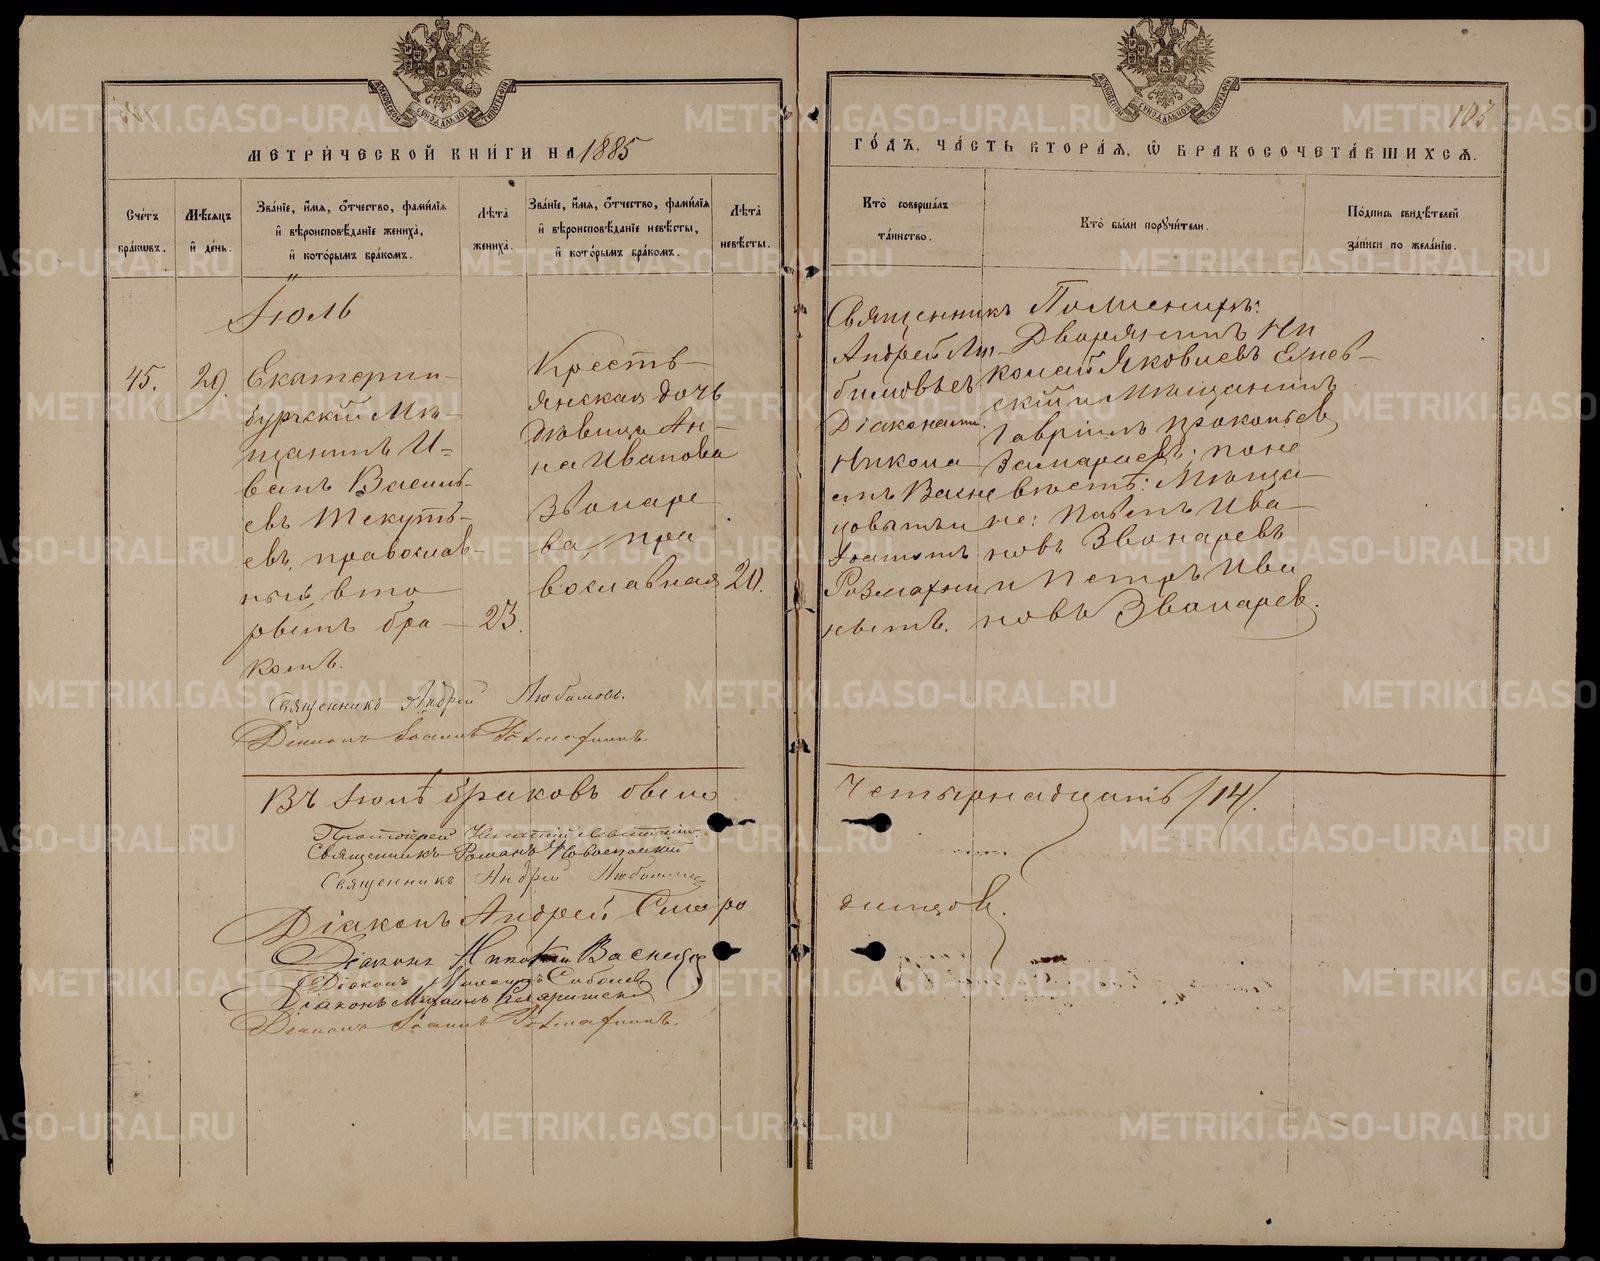 МЕТРИ́ЧЕСКОЙ КНИ́ГИ НА 1885
Сче́тъ бра́кωвъ.
Мѣ́сяцъ и҆ де́нь.
Зва́нїе, и҆́мя, ѻ҆́тчество, фами́лїя и҆ вѣроисповѣ́данїе жениха̀, и҆ кото́рымъ бра́комъ.
Лѣта̀ жениха̀.
Зва́нїе, и҆́мя, ѻ҆́тчество, фами́лїя и҆ вѣроисповѣ́данїе невѣ́сты, и҆ кото́рымъ бра́комъ.
Лѣта̀ невѣ́сты.
Іюль
45.
29.
Екатерин-
бургскій Мѣ-
щанинъ И-
ванъ Василь-
евъ Текуть-
евъ, православ-
ный, вто-
рымъ бра-
комъ.
23.
Кресть-
янская дочь
дѣвица Ан-
на Иванова
Звонаре
ва, пра
вославная
20.
Священникъ Андрей Любимовъ.
Діаконъ Іоаннъ
Въ Іюлѣ браковъ было
Протоіерей
Священникъ Романъ
Священникъ Андрей Любимовъ
Діаконъ Андрей Старо
Діаконъ Николай Васнецов
Діаконъ
Діаконъ Михаилъ
Діаконъ Іоаннъ
103
ГО́ДЪ, ЧА́СТЬ ВТОРА́Я, Ѡ҆ БРАКОСОЧЕТА́ВШИХСЯ.
Кто̀ соверша́лъ та́инство.
Кто̀ бы́ли порꙋчи́тели.
По́дпись свидѣ́телей за́писи по жела́нїю.
Священникъ
Андрей Лю-
бимовъ съ
Діаконами
Никола
емъ Васне
цовымъ и
Іоанномъ
По женихѣ:
Дворянинъ Ни
колай Яковлевъ
скій и Мѣщанинъ
Гавріилъ Прокопьев
по не
вѣстѣ: Мѣща-
не: Павелъ Ива-
новъ Звонаревъ
и Петръ Ива
новъ Звонарев.
четырнадцать /14/.
динцов.
METRIKI.GASO-URAL.RU